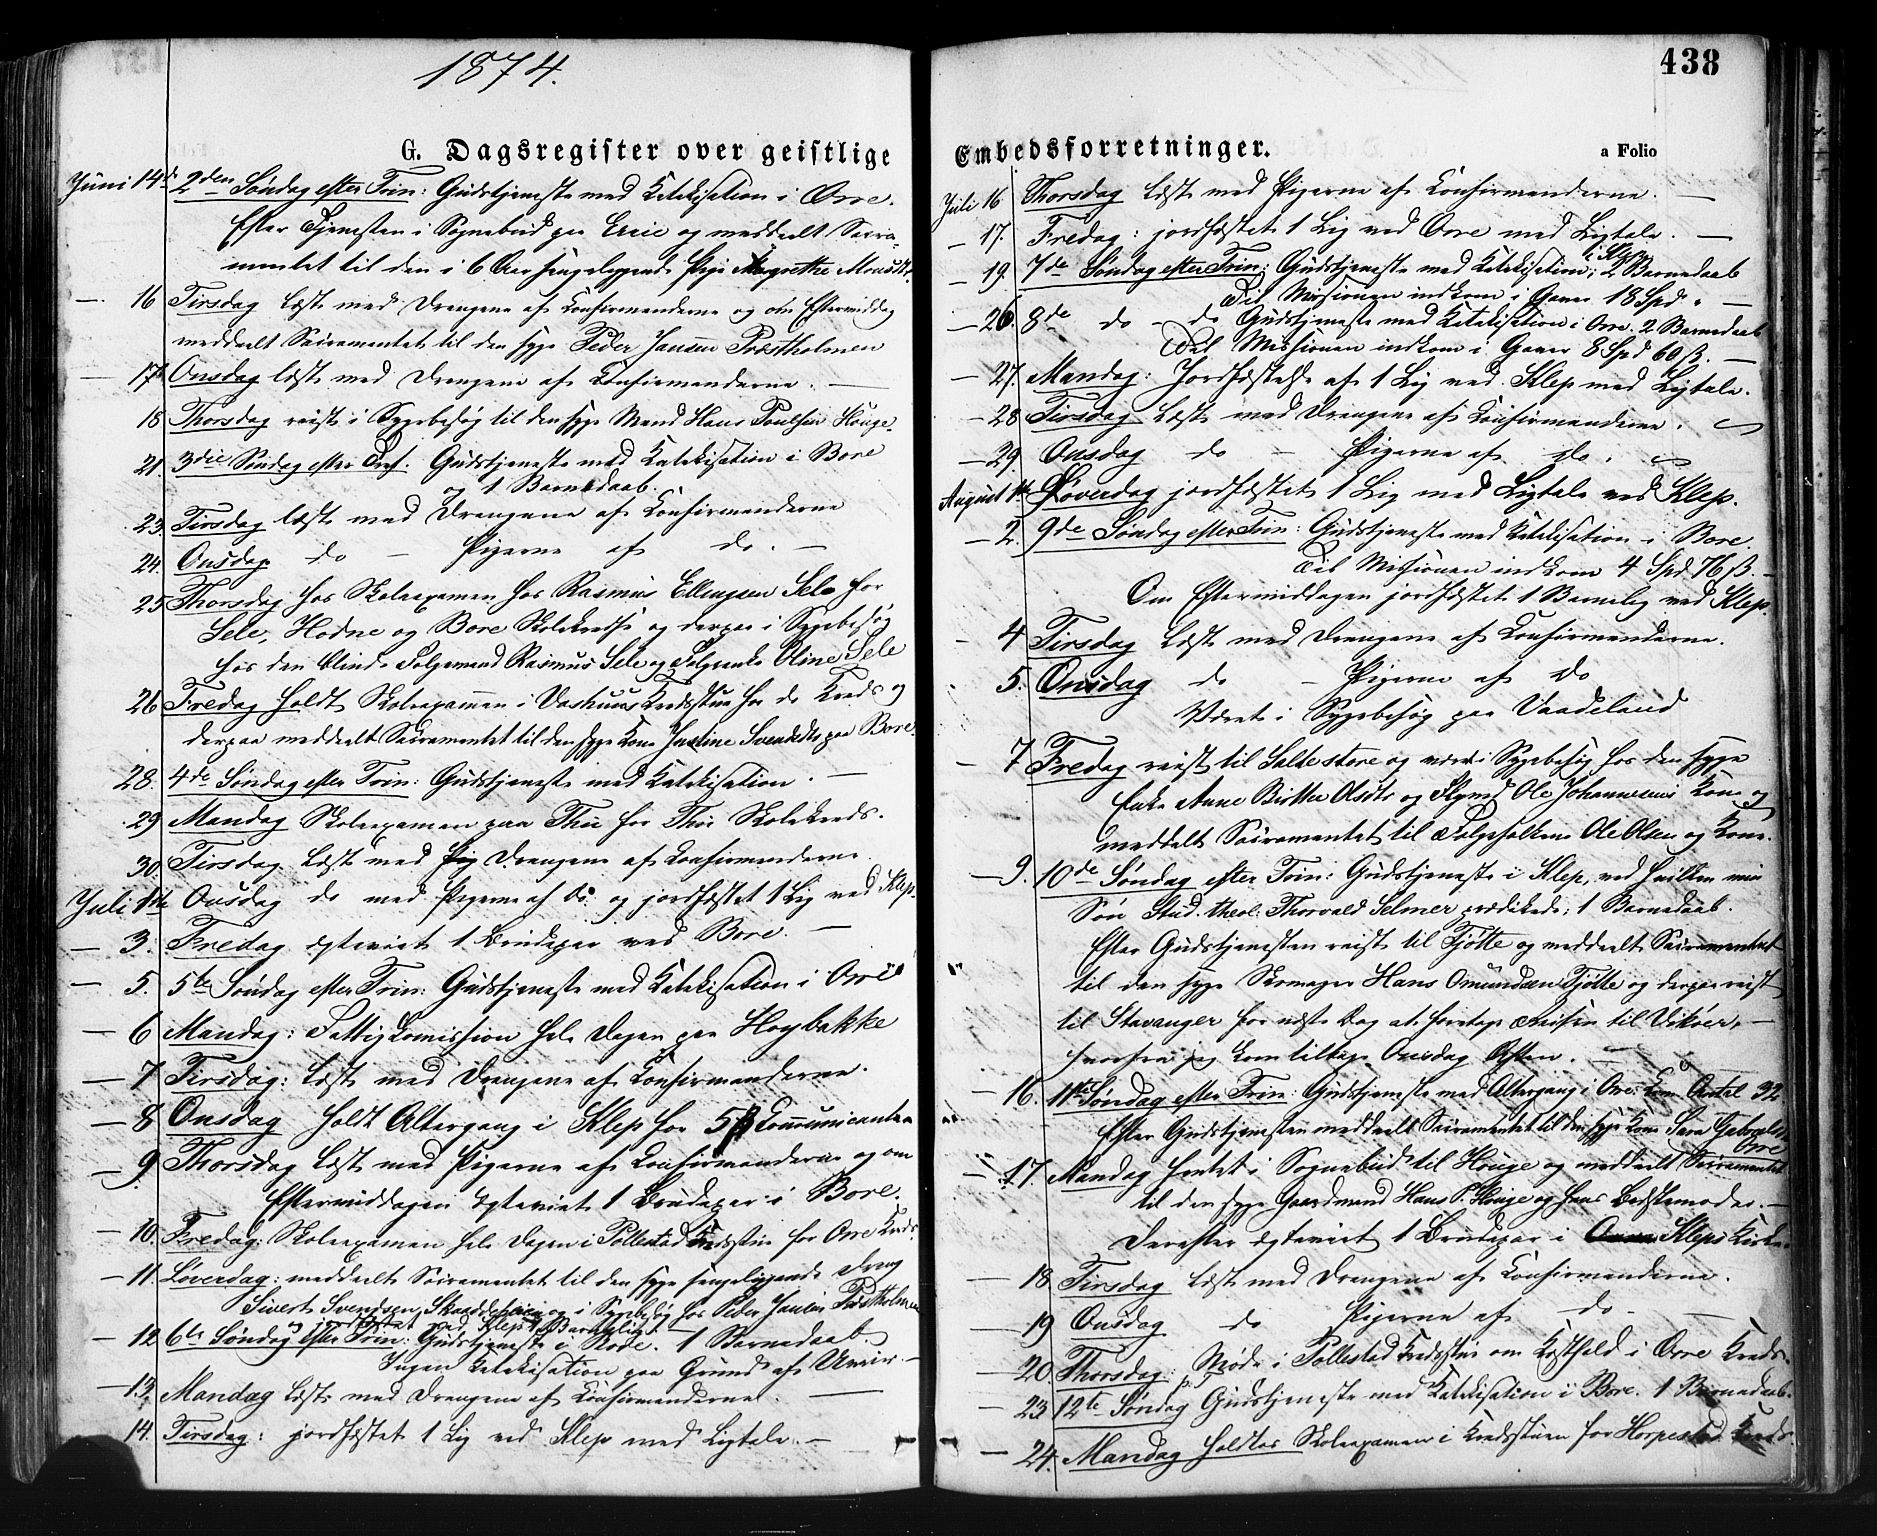 1874.
438
G. Dagsregister over geistlige
Juni 14de 2den Søndag efter Trin: Gudstjeneste med Katekisation i Orre.
Efter Tjenesten i Sognebud paa Erie og meddeelt Sacra-
mentet til den i 6 Aar sengeliggende Pige Margrethe Monsdtr.
— 16 Tirsdag læste med Drengene af Confirmanderne og om Eftermiddag
meddeelt Sacramentet til den syge Peder Jansen Præstholmen
— 17de Onsdag læste med Drengene af Confirmanderne. —
18 Thorsdag reist i Sygebesøg til den syge Mand Hans Poulsen Houge.
21. 3die Søndag efter Tref. Gudstjeneste med Katekisation i Bore
og 1 Barnedaab.
23. Tirsdag læste med Drengene af Confirmanderne
24. Onsdag do — Pigerne af do. —
25 Thorsdag hos Skoleexamen hos Rasmus Ellingsen Sele for
Sele, Hodne og Bore Skolekredse og derpaa i Sygebesøg
hos den blinde Folgemand Rasmus Sele og Folgeenke Oline Sele
26 Fredag holdt Skoleexamen i Vashuus Kredsstue for do Kreds og
derpaa meddeelt Sacramentet til den syge Kone Justine Svendsdtr paa Bore.
28. 4de Søndag efter Trin: Gudstjeneste med Katekisation. —
29 Mandag Skoleexamen paa Thu for Thu Skolekreds.
30. Tirsdag læste med Pig Drengene af Confirmanderne.
Juli 1ste Onsdag do med Pigerne af do. og jordfæstet 1 Lig ved Klep.
— 3. Fredag egteviet 1 Brudepar ved Bore. —
— 5. 5te Søndag efter Trin: Gudstjeneste med Katekisation i Orre
— 6 Mandag: Fattigkomission hele Dagen paa Hoybakke
— 7 Tirsdag: læste med Drengene af Confirmanderne.
— 8 Onsdag holdt Altergang i Klep for 58 Communicanter
— 9 Thorsdag læste med Pigerne af Confirmanderne og om
Eftermiddagen egteviet 1 Brudepar i Bore.
— 10. Fredag: Skoleexamen hele Dagen i Pollestad Kredsstue for Orre Kreds.
— 11. Løverdag: meddeelt Sacramentet til den syge sengeliggende Dreng
Sivert Svendsen, Skaddeheien og i Sygebesøg hos Peder Jansen Præstholmen
og jordfæstet ved Klep 1 Barnelig.
— 12 6te Søndag efter Trin: Gudstjeneste i Bore. 1 Barnedaab —
Ingen Katekisation paa Grund af Uveir. —
— 13. Mandag læste med Drengene af Confirmanderne. —
14. Tirsdag: jordfæstet 1 Lig ved Klep med Ligtale. —
Embedsforretninger.
a Folio
Juli 16 Thorsdag læste med Pigerne af Confirmanderne. —
— 17. Fredag: jordfæstet 1 Lig ved Orre med Ligtale. —
— 19. 7de Søndag efter Trin: Gudstjeneste med Katekisation i Klep; 2 Barnedaab
Til Missionen indkom i Gaver 18 Spd. —
— 26. 8de do — do Gudstjeneste med Katekisation i Orre. 2 Barnedaab
Til Missionen indkom i Gaver 8 Spd 60 ß. —
— 27. Mandag: Jordfæstelse af 1 Lig ved Klep med Ligtale.
— 28 Tirsdag læste med Drengene af Confirmanderne.
— 29. Onsdag do — Pigerne af do.
August 1ste Løverdag jordfæstet 1 Lig med Ligtale ved Klep.
— 2. 9de Søndag efter Trin: Gudstjeneste med Katekisation i Bore.
Til Missionen indkom 4 Spd 76 ß. —
Om Eftermiddagen jordfæstet 1 Barnelig ved Klep.
— 4 Tirsdag læste med Drengene af Confirmanderne.
5. Onsdag do — Pigerne af do
Været i Sygebesøg paa Vaadeland
— 7 Fredag reist til Salte store og været i Sygebesøg hos den syge
Enke Anne Birthe Olsdtr og Ole Johannesens Kone og
meddelt Sacramentet til Folgefolkene Ole Olsen og Kone.
— 9. 10de Søndag efter Trin: Gudstjeneste i Klep, ved hvilken min
Søn Stud. theol: Thorvald Selmer prædikede; 1 Barnedaab.
Efter Gudstjenesten reist til Tjøtte og meddeelt Sacramentet
til den syge Skomager Hans Omundsen Tjøtte og derpaa reist
til Stavanger for næste Dag at foretage Reisen til Vikøer, —
hvorfra jeg kom tilbage Onsdag Aften.
— 16. 11te Søndag efter Trin: Gudstjeneste med Altergang i Orre. Com. Antal 32
Efter Gudstjenesten meddeelt Sacramentet til den syge Kone Sara Gabrielsdtr
Orre
— 17 Mandag hentet i Sognebud til Houge og meddeelt Sacramentet
til den syge Gaardmand Hans P. Houge og hans Bedstemoder. —
Derefter egteviet 1 Brudepar i Klep Kirke.
— 18 Tirsdag læste med Drengene af Confirmanderne.
— 19 Onsdag do Pigerne af do —
— 20 Thorsdag Møde i Pollestad Kredsstue om Kosthold i Orre Kreds.
— 23 12te Søndag Gudstjeneste med Katekisation i Bore. 1 Barnedaab.
— 24. Mandag holdtes Skoleexamen i Kredsstuen for Horpestad Kreds